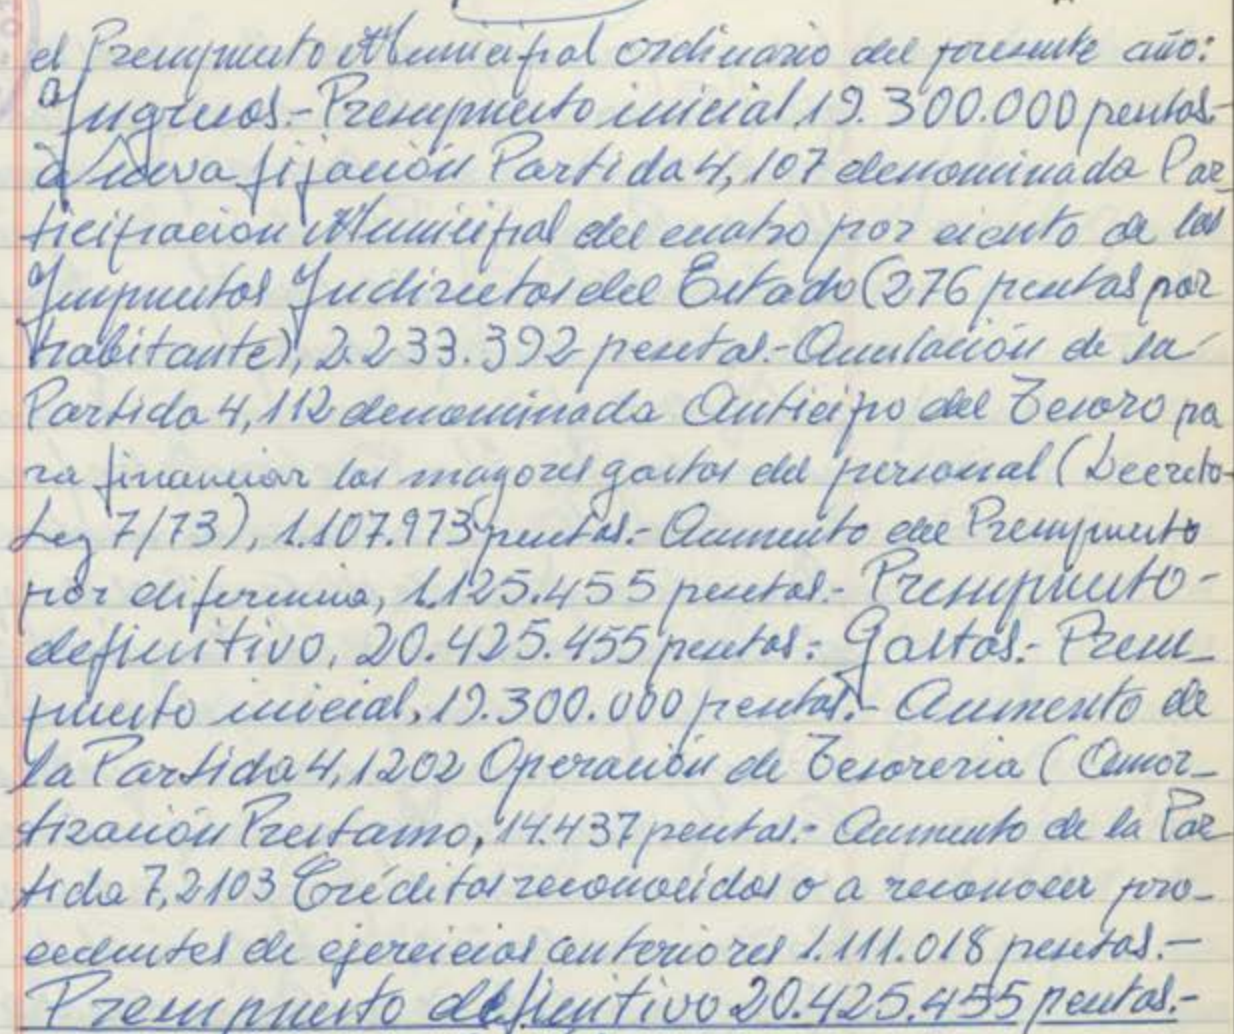 el Presupuesto Municipal ordinario del presente año:
Ingresos.- Presupuesto inicial 19.300.000 pesetas.-
Nueva fijación Partida 4,107 denominada Par-
ticipación Municipal del cuatro por ciento de los
Impuestos Indirectos del Estado (276 pesetas por
habitante), 2.233.392 pesetas.- Anulación de la
Partida 4,112 denominada Anticipo del Tesoro pa
ra financiar los mayores gastos del personal (Decreto-
Ley 7/73), 1.107.973 pesetas.- Aumento del Presupuesto
por diferencia, 1.125.455 pesetas.- Presupuesto-
definitivo, 20.425.455 pesetas.- Gastos.- Presu-
puesto inicial, 19.300.000 pesetas.- Aumento de
la Partida 4,1202 Operación de Tesoreria (Amor-
tización Prestamo, 14.437 pesetas.- Aumento de la Par
tida 7,2103 Créditos reconocidos o a reconocer pro-
cedentes de ejercicios anteriores 1.111.018 pesetas.-
Presupuesto definitivo 20.425.455 pesetas.-